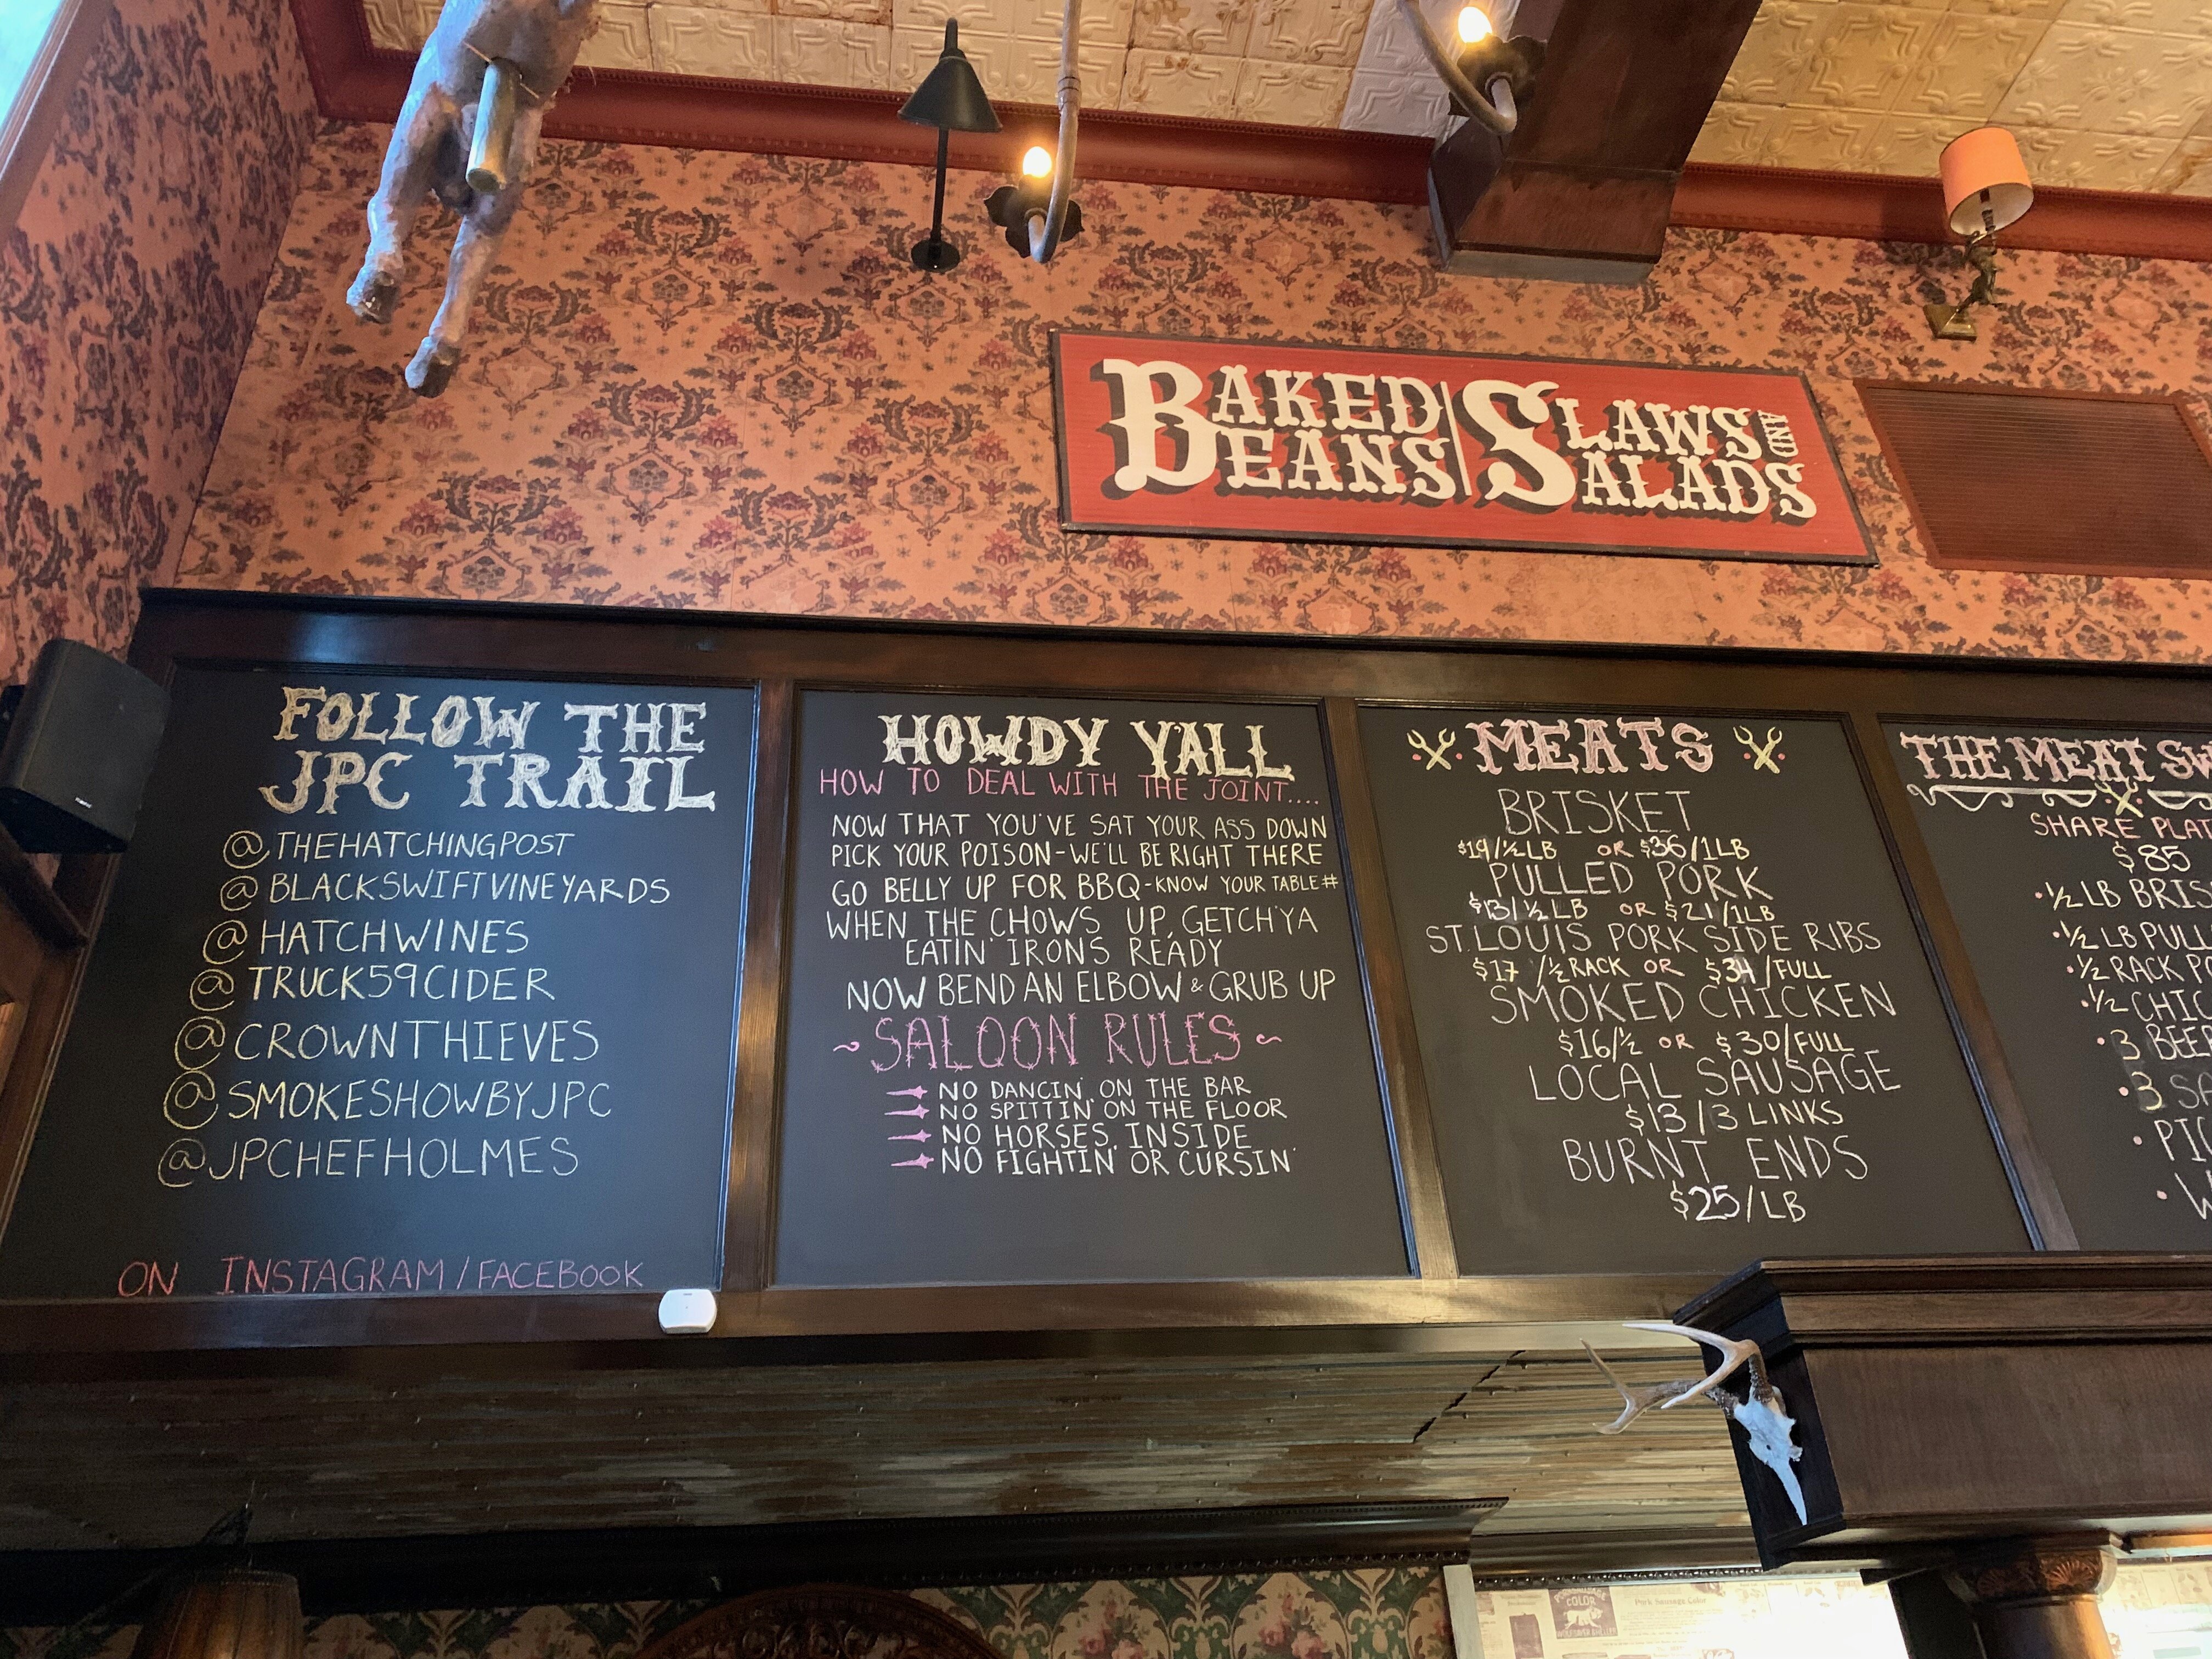 BAKED BEANS
SLAWS AND SALADS
FOLLOW THE
JPC TRAIL
@THEHATCHINGPOST
@BLACKSWIFTVINEYARDS
@HATCHWINES
@TRUCK59CIDER
@CROWNTHIEVES
@SMOKESHOWBYJPC
@JPCHEFHOLMES
ON INSTAGRAM/FACEBOOK
HOWDY YALL
HOW TO DEAL WITH THE JOINT....
NOW THAT YOU'VE SAT YOUR ASS DOWN
PICK YOUR POISON-WE'LL BE RIGHT THERE
GO BELLY UP FOR BBQ-KNOW YOUR TABLE#
WHEN THE CHOWS UP, GETCH'YA
EATIN' IRONS READY
NOW BEND AN ELBOW & GRUB UP
~SALOON RULES~
NO DANCIN' ON THE BAR
NO SPITTIN' ON THE FLOOR
NO HORSES INSIDE
NO FIGHTIN' OR CURSIN'
MEATS
BRISKET
$19/½LB OR $36/1LB
PULLED PORK
$13/½LB OR $21/1LB
ST.LOUIS PORK SIDE RIBS
$17/½RACK OR $34/FULL
SMOKED CHICKEN
$16/½ OR $30/FULL
LOCAL SAUSAGE
$13/3 LINKS
BURNT ENDS
$25/LB
THE MEAT
SHARE
$85
•½ LB
•½ LB
•½ RACK
•½
•3
•3
COLOR
Pork Sausage Color